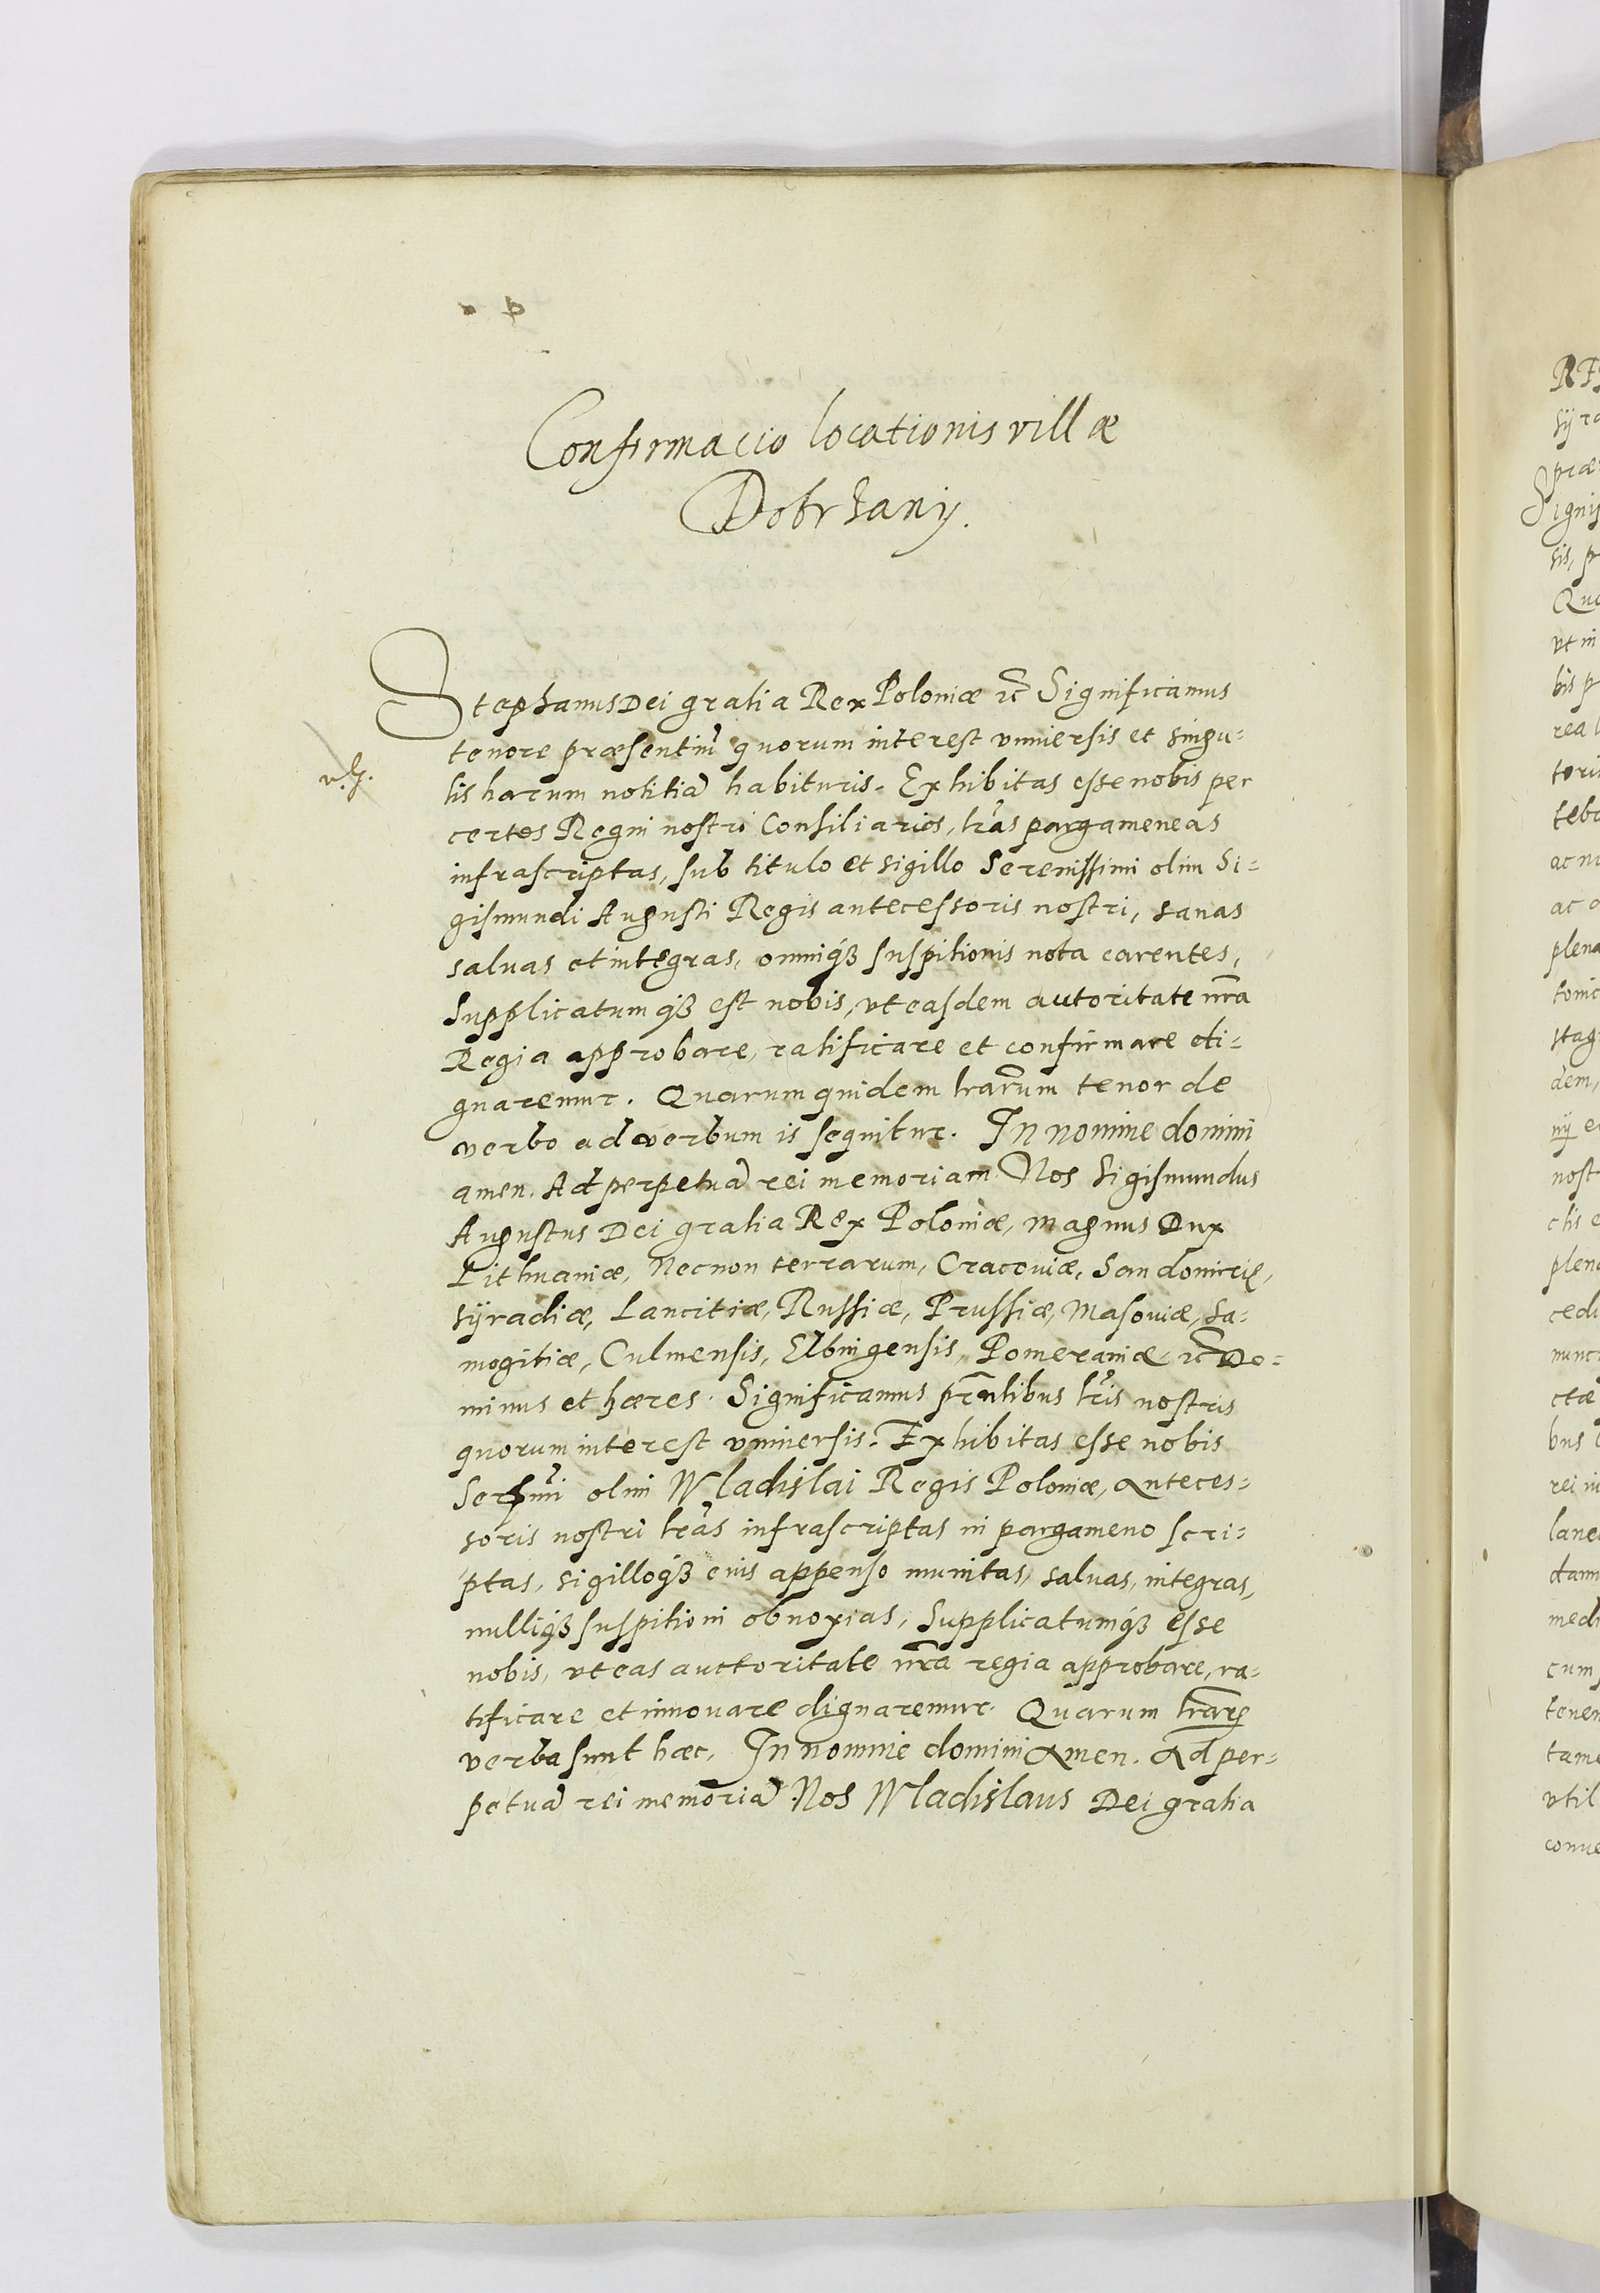 Confirmacio locationis villæ
Dobrhanÿ.
Stephanus Dei gratia Rex Poloniæ ꝛc̃ Significamus
tenore præsentiũ quorum interest vniuersis et singu-
lis harum notitiã habituris. Exhibitas esse nobis per
certos Regni nostri Consiliarios, lr̃as pargameneas
infrascriptas, sub titulo et sigillo Serenissimi olim Si-
gismundi Augusti Regis antecessoris nostri, sanas
saluas et integras, omniqꝫ suspitionis nota carentes,
Supplicatumqꝫ est nobis, vt easdem autoritate nr̃a
Regia approbare, ratificare et confirmare di-
gnaremur. Quarum quidem lrãrum tenor de
verbo ad verbum is sequitur. In nomine domini
amen. Ad perpetuã rei memoriam Nos Sigismundus
Augustus Dei gratia Rex Poloniæ, magnus Dux
Lithuaniæ, Necnon terrarum, Cracouiæ, Sandomirię,
Sÿradiæ, Lancitiæ, Russiæ, Prussiæ, Masouiæ, Sa-
mogitiæ, Culmensis, Elbingensis, Pomeraniæ ꝛc̃ Do-
minus et hæres. Significamus prñtibus lr̃is nostris
quorum interest vniuersis. Exhibitas esse nobis
Serſmi olim Wladislai Regis Poloniæ, anteces-
soris nostri lr̃as infrascriptas in pargameno scri-
ptas, sigilloqꝫ eius appenso munitas, saluas, integras,
nulliqꝫ suspitioni obnoxias, Supplicatumqꝫ esse
nobis, vt eas auctoritate nr̃a regia approbare, ra-
tificare et innouare dignaremur. Quarum lrãrꝫ
verba sunt hæc. In nomine domini Amen. Ad per-
petuã rei memoriã. Nos Wladislaus Dei gratia